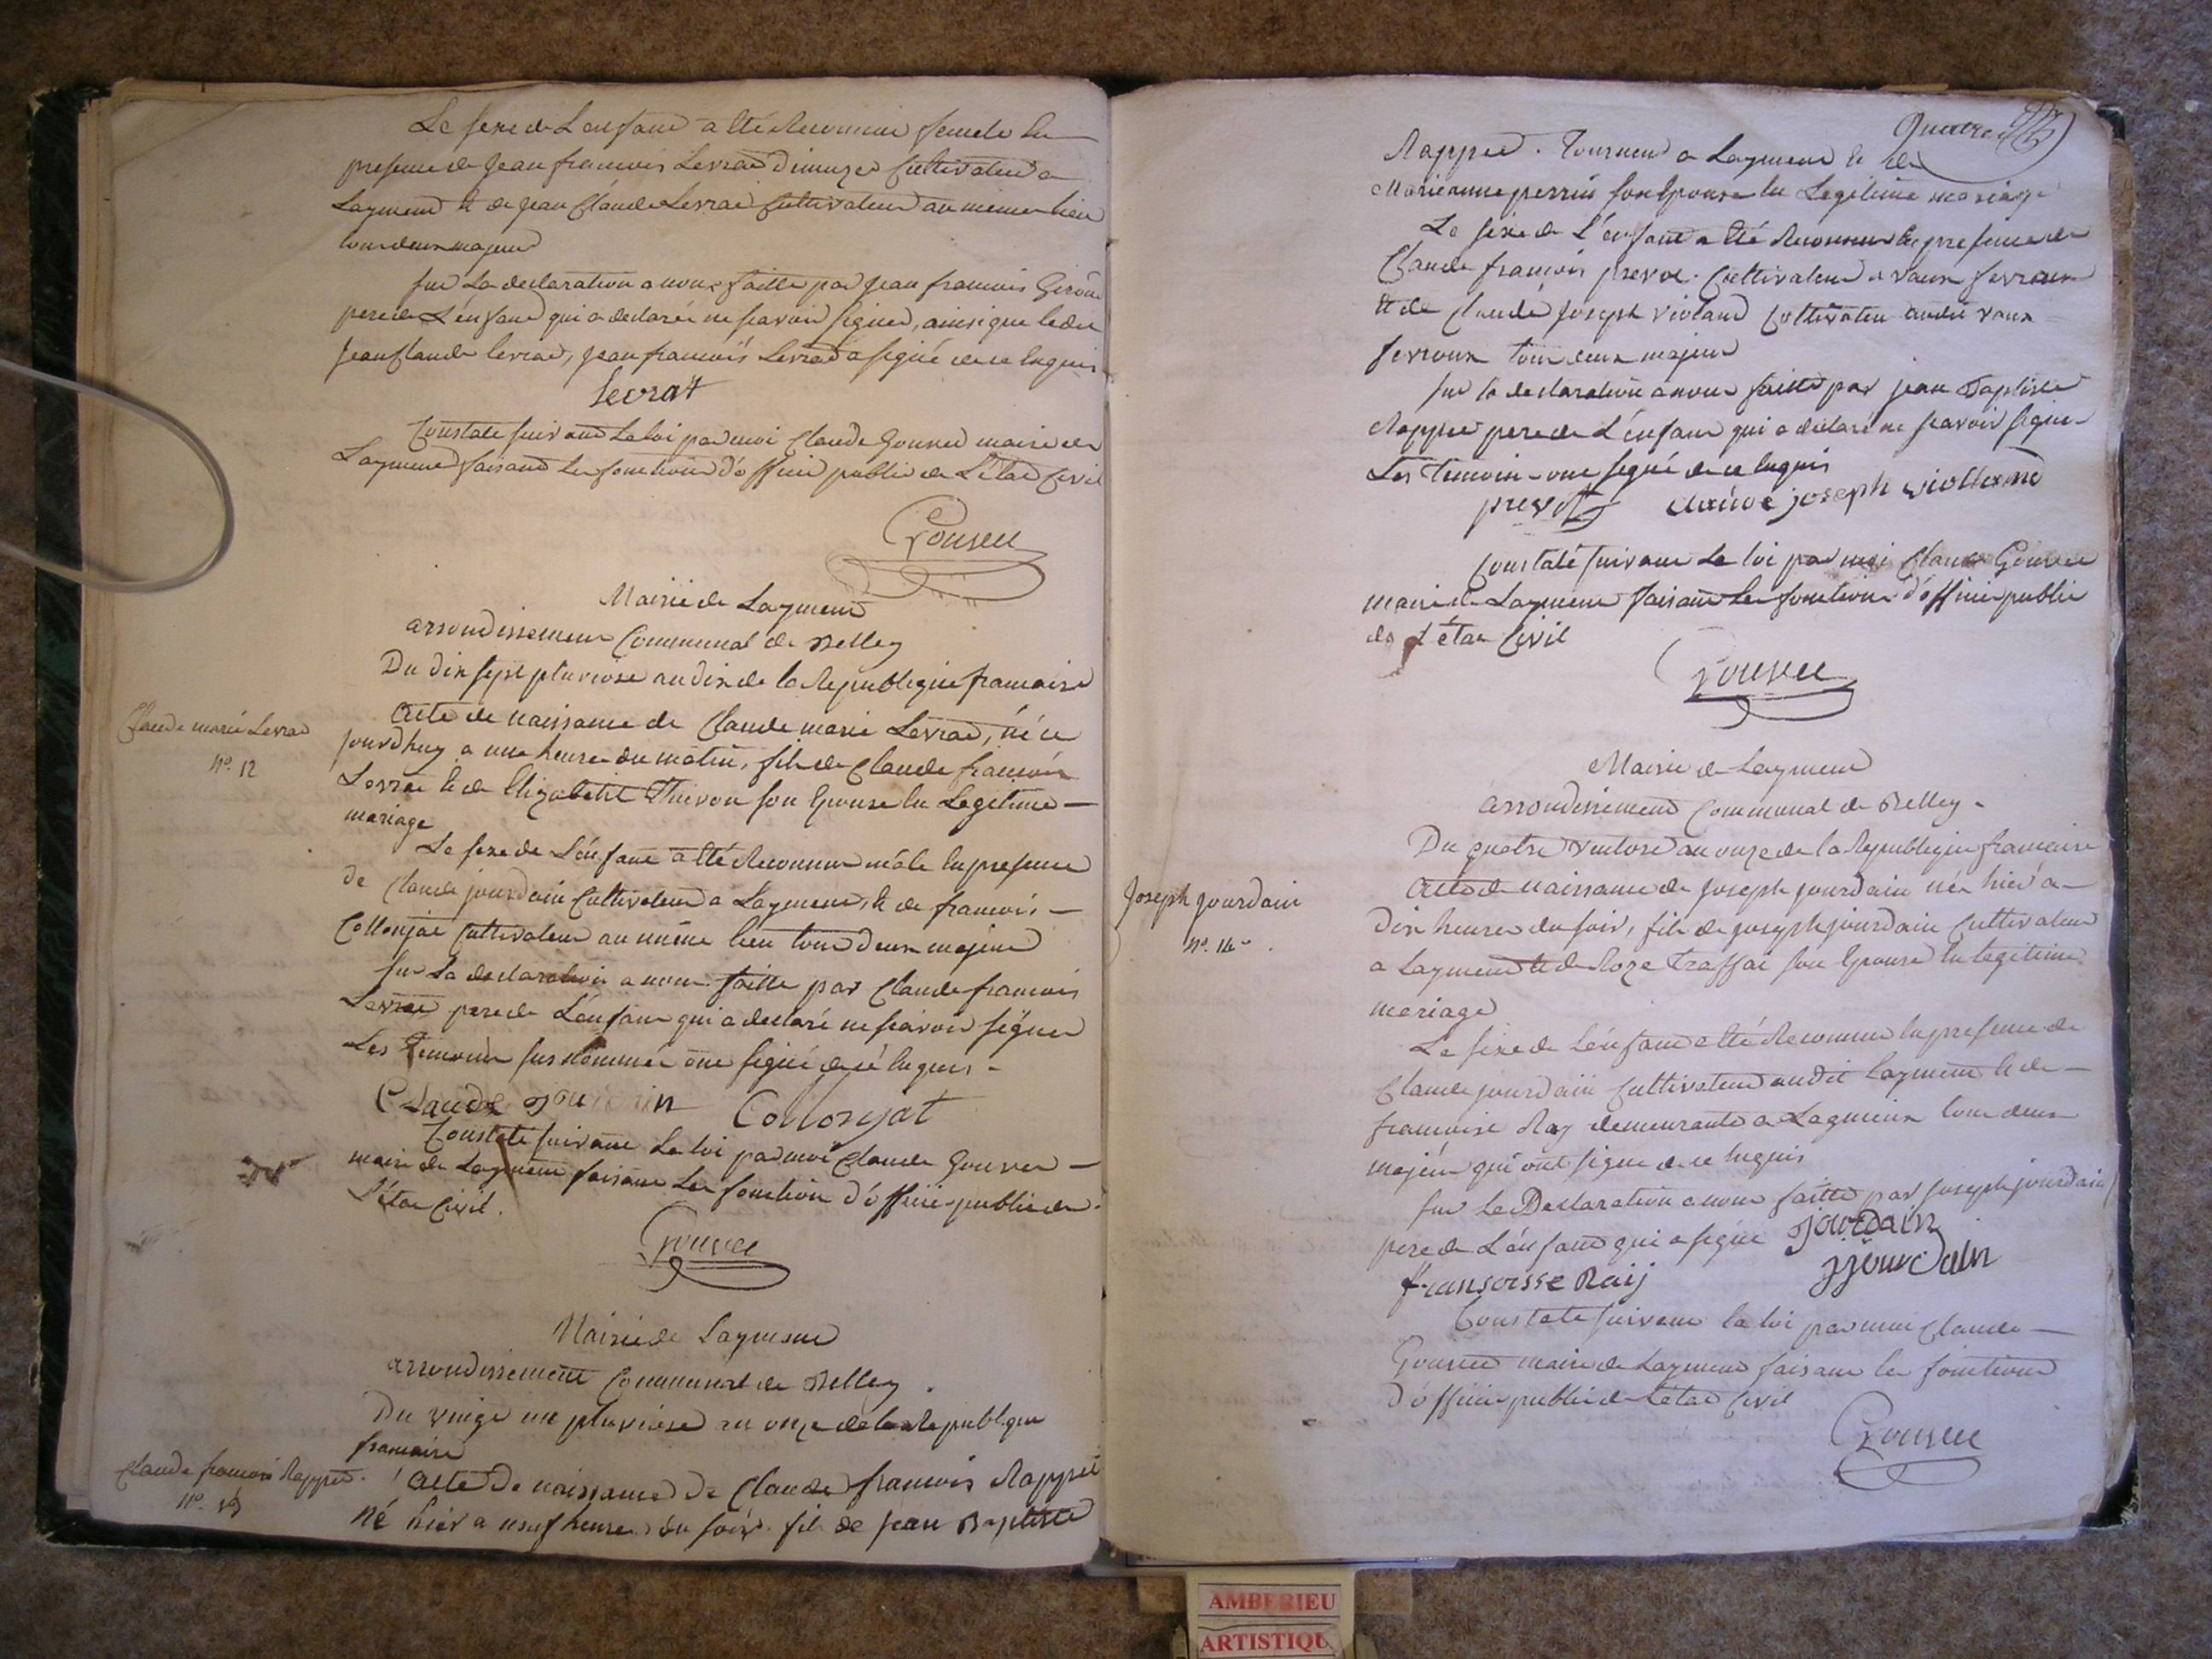 Le sexe de L'enfant a Eté Reconnu femele En
presence de jean francois Levrat dimuzed Cultivateur a
Laymend et de jean Claude Levrat Cultivateur au meme lieu
tous deux majeurs
sur La declaration a nous faitte par jean francois
pere de L'enfant qui a declaré ne scavoir signer, ainsi que ledit
jean Claude levrat, jean francois Levrat a signé de ce Enquis
Levrat
Constaté suivant La loi par moi Claude Gouvet maire de
Laymend faisant les fonctions d'officier public de L'etat Civil
Gouvet
Mairie de Laymend
arrondissement Communal de Belley
Du dix sept pluviose an dix de la Republique francaise
Claude marie Levrat
N°. 12
Acte de naissance de Claude marie Levrat, né ce
jourdhuy a une heure du matin, fils de Claude francois
Levrat et de Elizabeth Thevon son Epouse En Legitime
mariage
Le sexe de L'enfant a Eté Reconnu mâle En presence
de Claude jourdain Cultivateur a Laymend, et de francois
Collonjat Cultivateur au même lieu tous deux majeurs
sur La declaration a nous faitte par Claude francois
Levrat pere de L'enfant qui a declaré ne scavoir signer
Les temoins sus nommés ont signé de cé Enquis
Claude jourdain Collonjat
Constaté suivant La loi par moi Claude Gouvet
maire de Laymend faisant Les fonctions d'officier public de
L'etat Civil.
Gouvet
Mairie de Laymend
arrondissement Communal de Belley.
Du vingt un pluviose an onze de la Republique
francaise
Claude francois Rappet
N°. 13
Acte de naissance de Claude francois Rappet
Né hier a neuf heures du soir. fils de jean Baptiste
Rappet. Tourneur a Laymend et de
Marieanne perrin son Epouse En Legitime mariage
Le sexe de L'enfant a Eté Reconnu En presence de
Claude francois prevot. Cultivateur a vaux fevroux
et de Claude joseph violand Cultivateur audit vaux
fevroux tous deux majeurs
sur la declaration a nous faitte par jean Baptiste
Rappet pere de L'enfant qui a declaré ne scavoir signer
Les temoins ont signé de ce Enquis
prevot claude joseph violland
Constaté suivant La loi par moi Claude Gouvet
maire de Laymend faisant Les fonctions d'officier public
de L'état Civil
Gouvet
Mairie de Laymend
arrondissement Communal de Belley.
Du quatre ventose an onze de la Republique francaise
Joseph jourdain
N°. 14
Acte de naissance de joseph jourdain née hier a
dix heures du soir, fils de joseph jourdain Cultivateur
a Laymend et de Roze traffai son Epouse En legitime
mariage
Le sexe de L'enfant a Eté Reconnu En presence de
Claude jourdain Cultivateur audit Laymend et de
francoise Ray demeurante a Lagnieux tous deux
majeurs qui ont signé de ce Enquis
sur La Declaration a nous faitte par joseph jourdain
pere de L'enfant qui a signé jourdain
fransoisse Raij jjourdain
Constaté suivant la loi par moi Claude
Gouvet maire de Laymend faisant les fonctions
d'officier public de L'etat Civil
Gouvet
AMBERIEU
ARTISTIQU